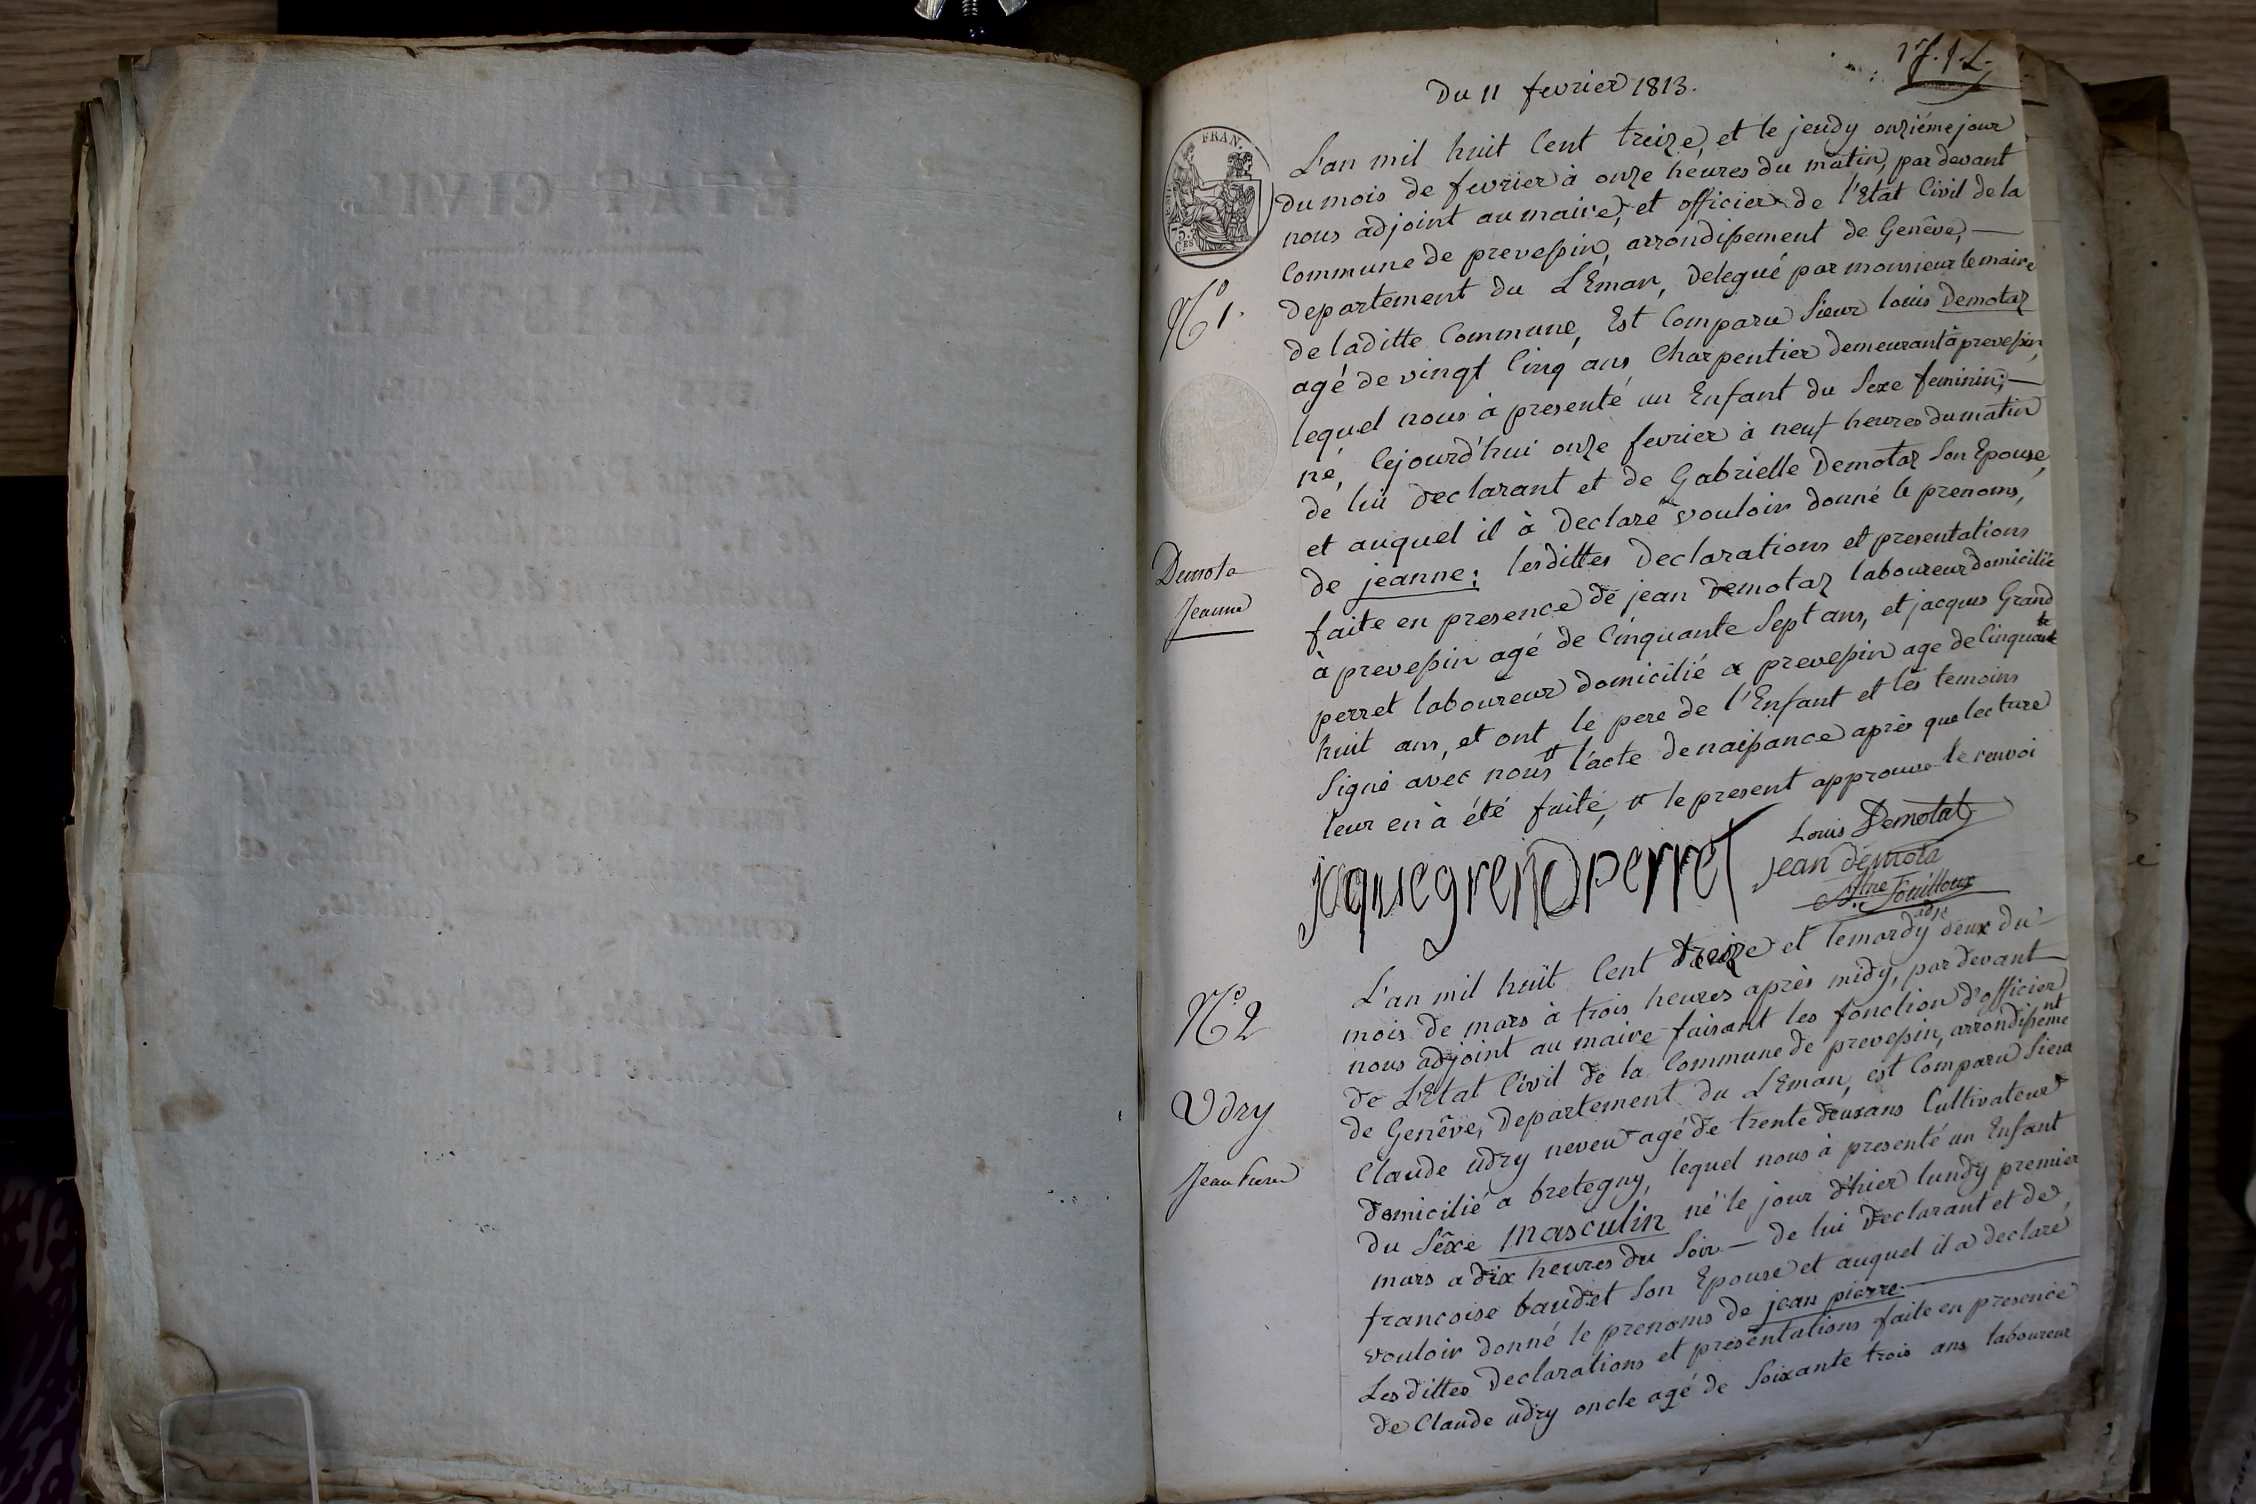 17. J. L.
Du 11 fevrier 1813.
FRAN.
5.
CES
L'an mil huit Cent treize, et le jeudy onziéme jour
du mois de fevrier à onze héures du matin, par devant
nous adjoint au maire, et officier de l'Etat Civil de la
Commune de prevessin, arrondissement de Genêve, —
departement du LEman, delegué par monsieur le maire
de laditte Commune, Est Comparu Sieur louis Demotaz
agé de vingt Cinq ans Charpentier demeurant à prevessin,
lequel nous à presenté un Enfant du Sexe feminin; —
né, Cejourd'hui onze fevrier à neuf heures du matin
de lui declarant et de Gabrielle Demotaz Son Epouse,
et auquel il à declaré vouloir donné le prenoms,
de jeanne; lesdittes declarations et presentations
faite en presence de jean demotaz laboureur domicilié
à prevessin agé de Cinquante Sept ans, et jacques Grand
perret laboureur domicilié a prevessin age de Cinquante
huit ans, et ont le pere de l'Enfant et les temoins
Signé avec nous # l'acte de naissance après que lecture
leur en à été faite, # le present approuve le renvoi
N° 1.
Demota
Jeanne
Louis Demotaz
jaquegrenDperret
jean demota
fouilloux
adj
L'an mil huit Cent treize et le mardy deux du
mois de mars à trois heures après midy, par devant
nous adjoint au maire faisant les fonction d'officier
de L'Etat Civil de la Commune de prevessin, arrondissement
de Genêve, Departement du LEman, est Comparu Sieur
Claude udry neveu agé de trente deux ans Cultivateur
domicilié a bretegny, lequel nous à presenté un Enfant
du Sêxe masculin né le jour d'hier lundy premier
mars a dix heures du Soir — de lui declarant et de
francoise baudet Son Epouse et auquel il a declaré
vouloir donné le prenoms de jean pierre.
Les dittes declarations et presentations faite en presence
de Claude udry oncle agé de Soixante trois ans laboureur
N° 2
Udry
Jean Pierre